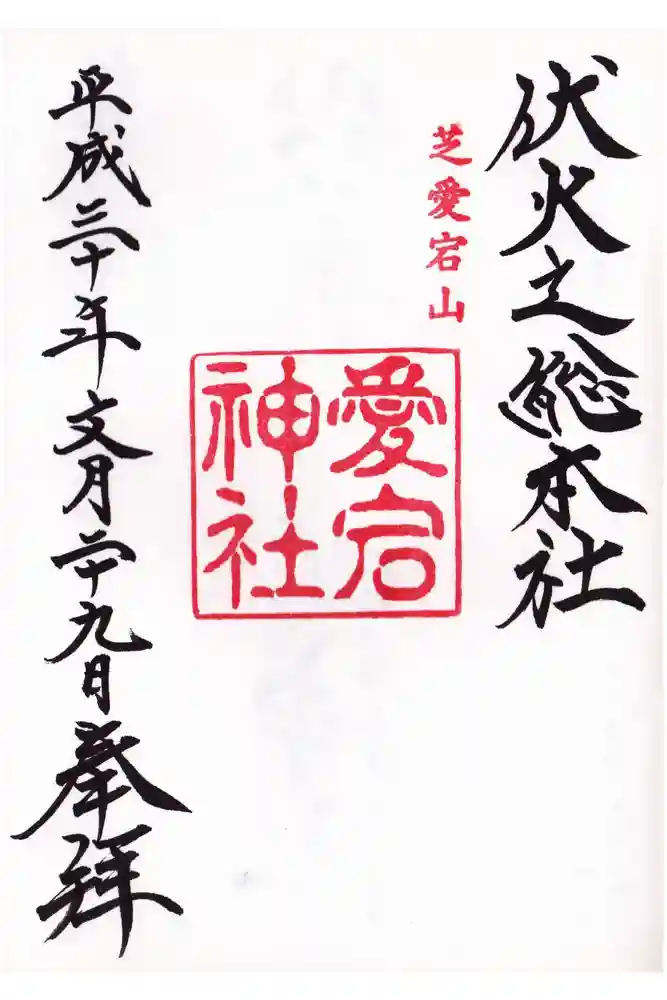 伏火之総本社
芝愛宕山
愛宕
神社
平成三十年文月二十九日奉拜